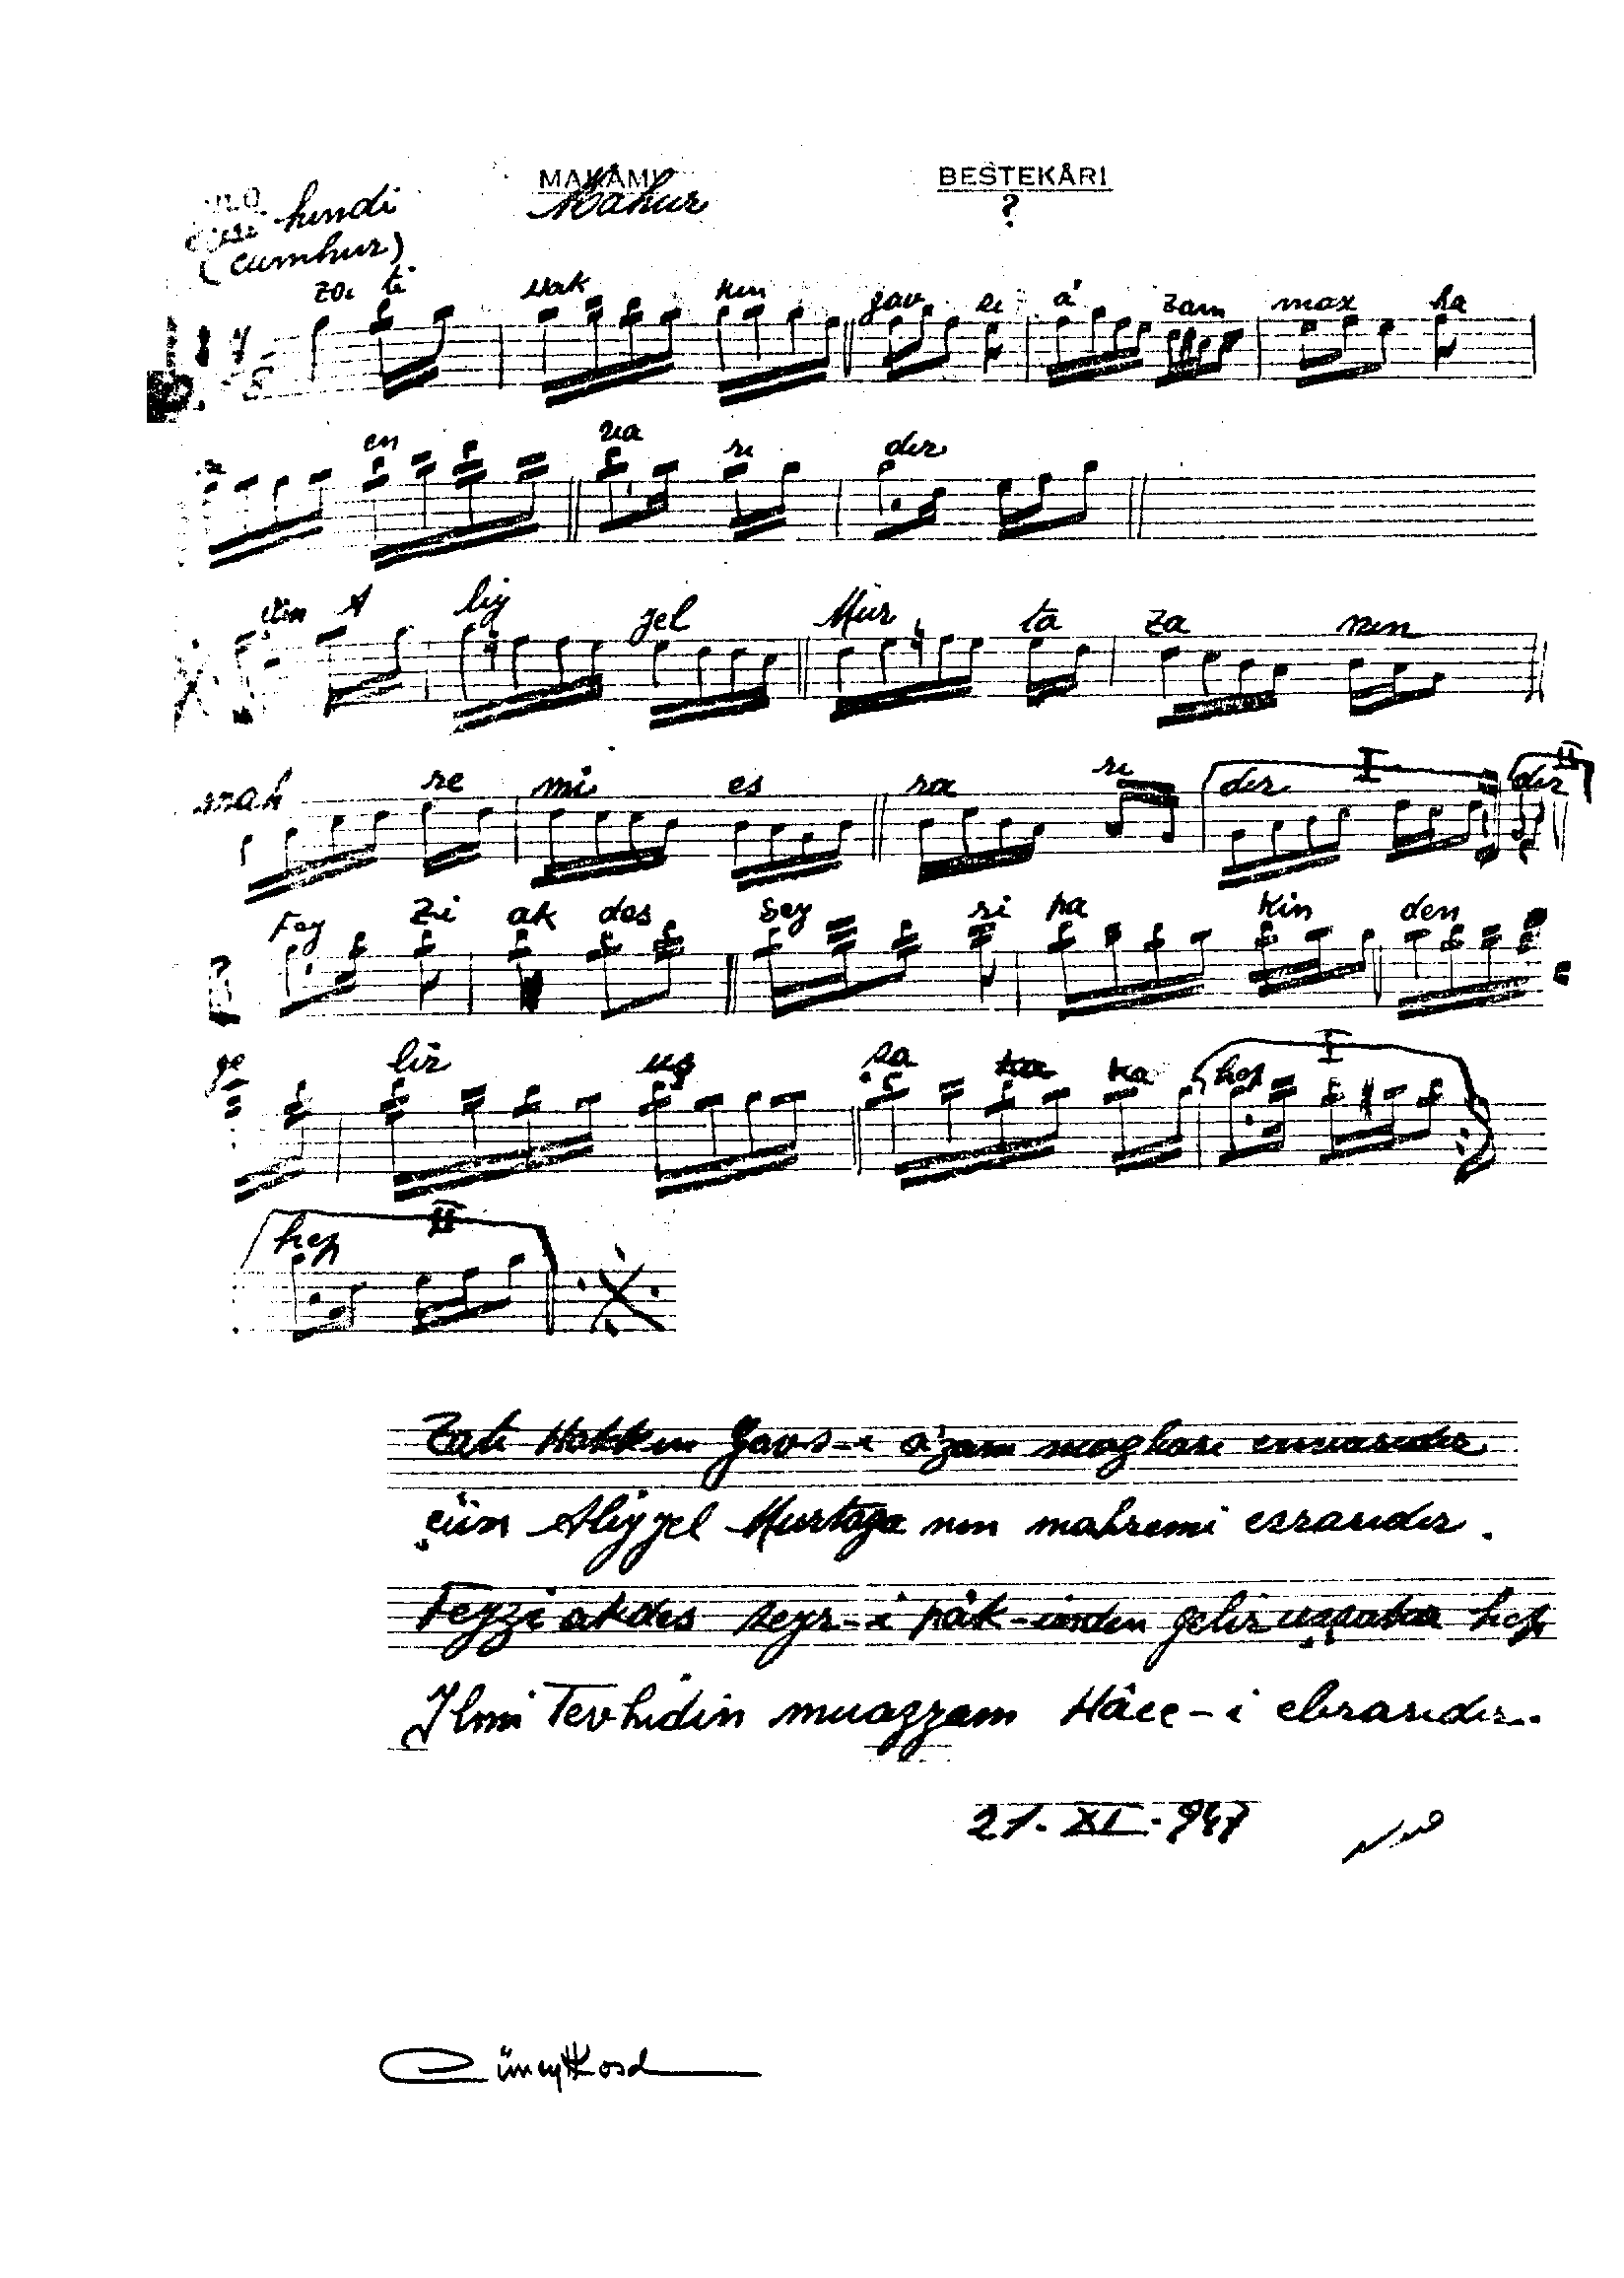 MAKÂMI BESTEKÂRI
hindi Mahur ?
(cumhur)
za ti Hak kın gav si â zam maz ha
rı en va rı dır
çün A liy yel Mur ta za nın
mah re mi es ra rı dır I dır II
Fey zi ak des sey ri pa kin den
ge lir uş şa ka hep I
hep II
Zatı Hakkın Gavs-ı a'zam mazharı envarıdır
çün Aliyyel Murtaza nın mahremi esrarıdır.
Feyzi akdes seyr-i pâk-inden gelir uşşaka hep
İlmi Tevhidin muazzam Hâce-i ebrarıdır.
21-XI-947
Cüneyt Kosal